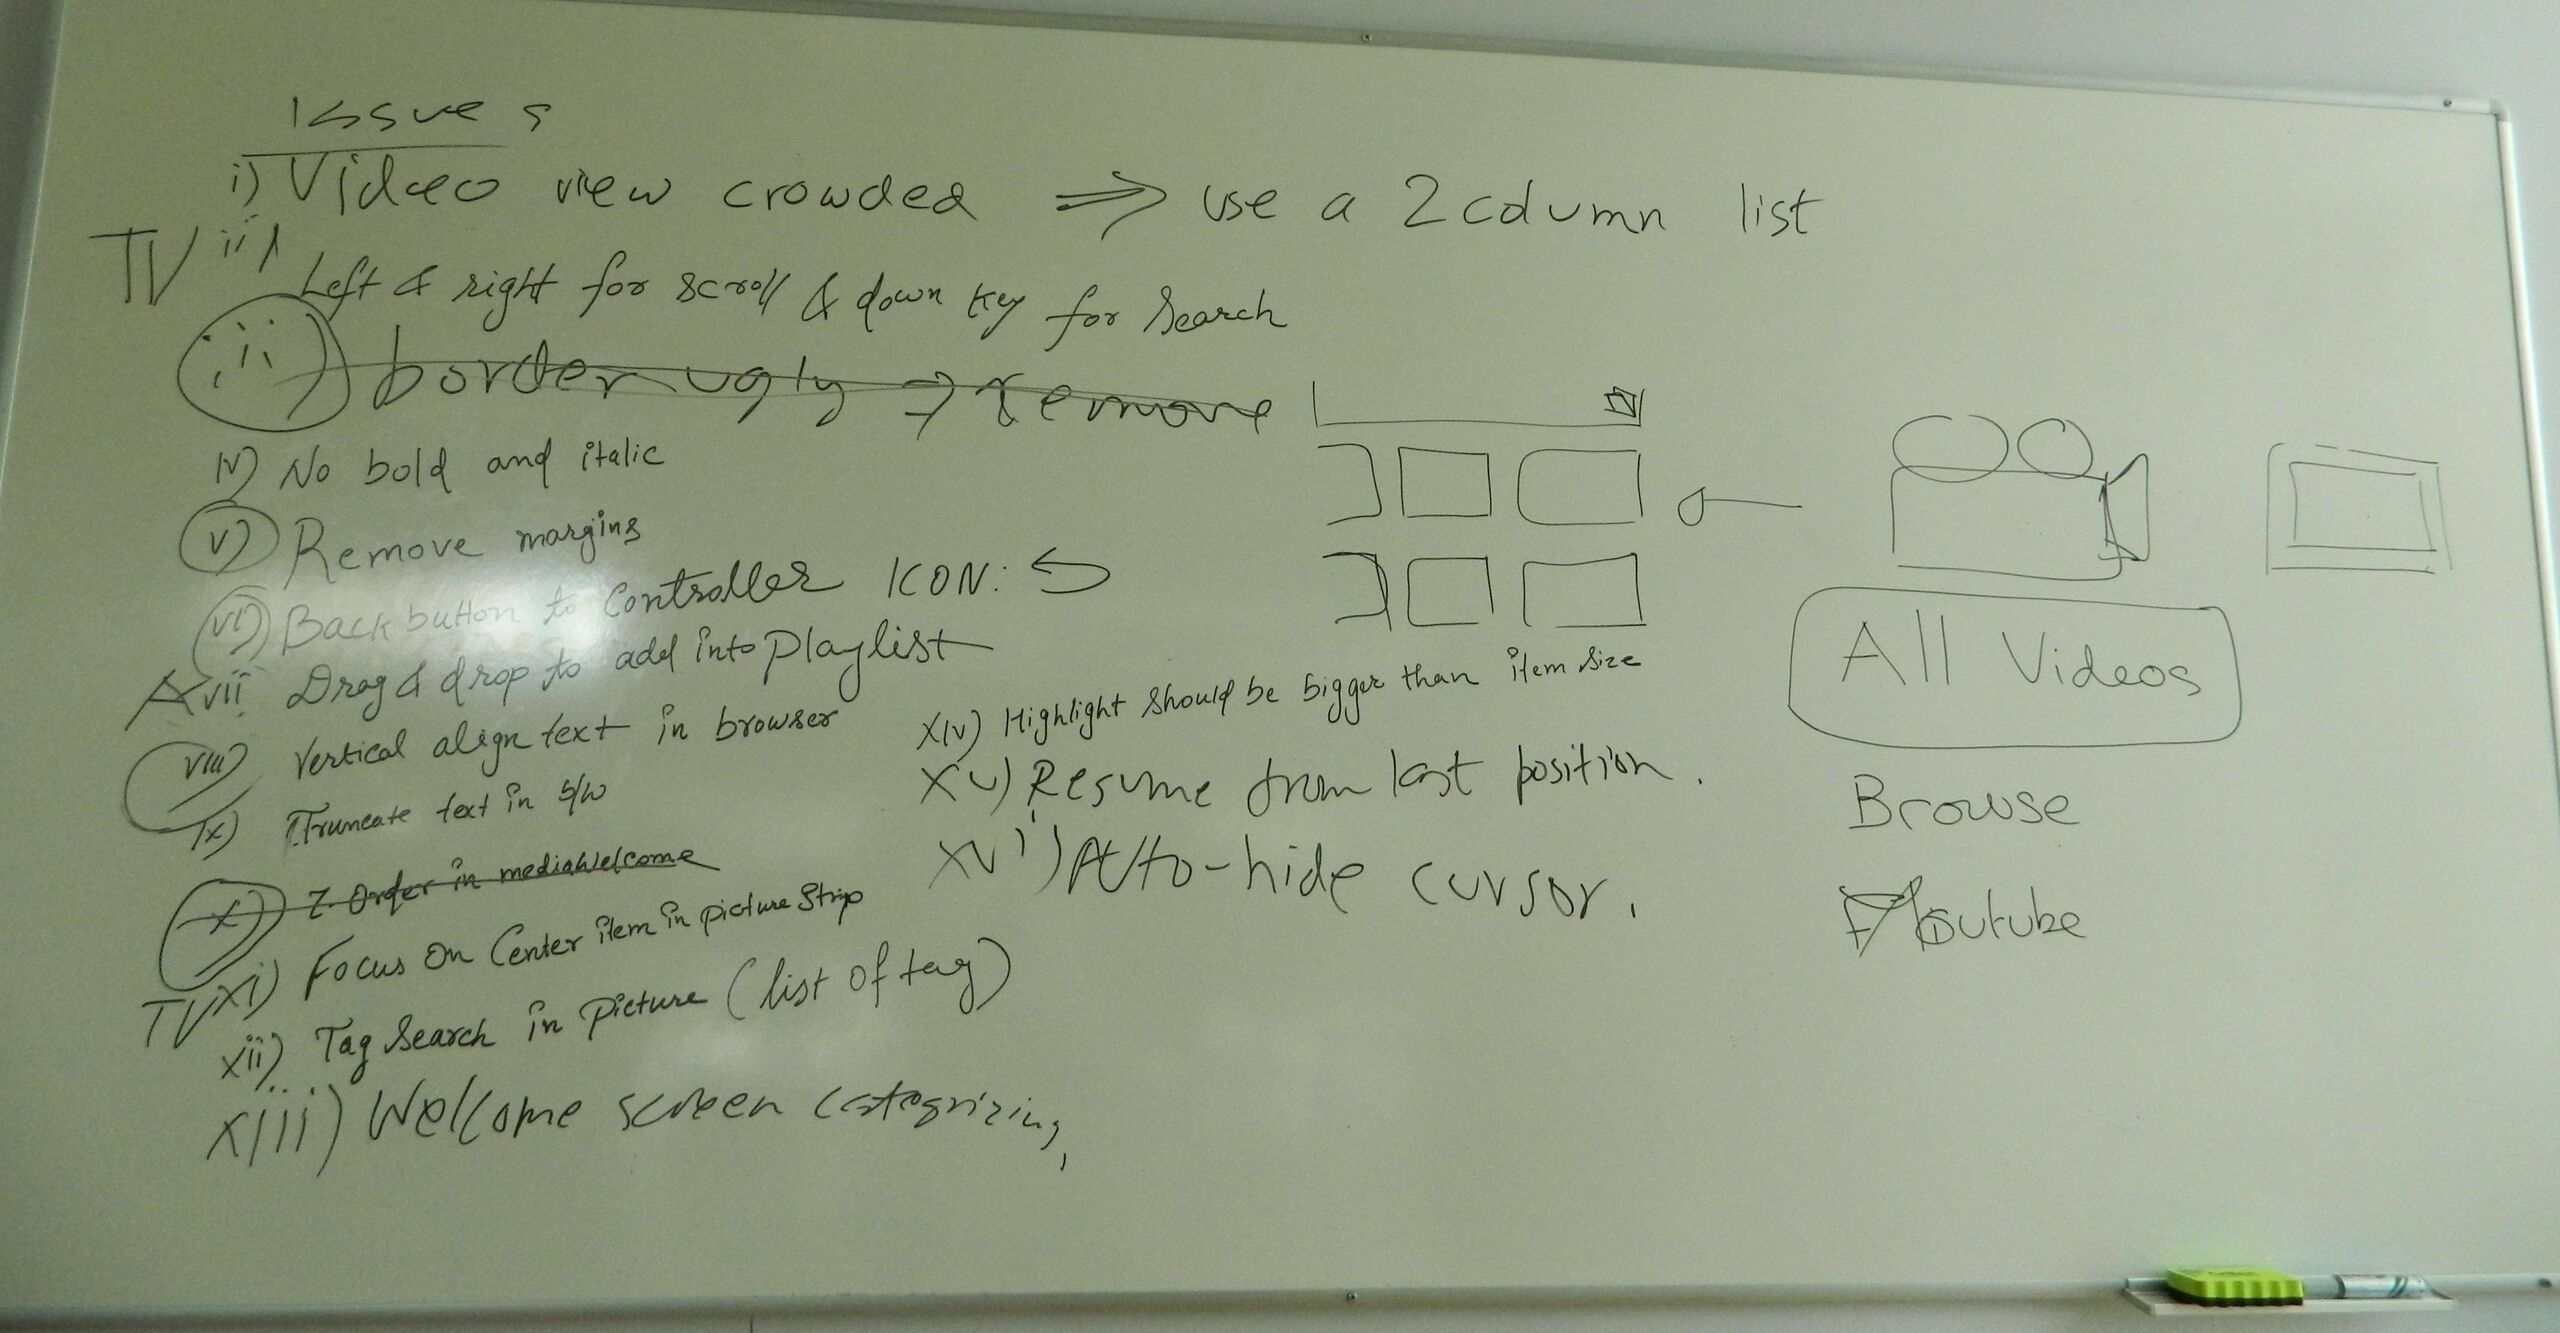 Issues
i) Video view crowded ⇒ use a 2 column list
TV ii) Left & right for scroll & down key for search
iii) border ugly → remove
iv) No bold and italic
v) Remove margins
vi) Back button to Controller ICON:
A vii Drag & drop to add into Playlist
viii) Vertical align text in browser
ix) Truncate text in s/w
x) Z-Order in mediaWelcome
TV xi) Focus on Center item in picture Strip
xii) Tag Search in Picture (list of tag)
xiii) Welcome screen categorizing,
xiv) Highlight should be bigger than item size
xv) Resume from last position.
xvi) Auto-hide cursor.
All Videos
Browse
Youtube